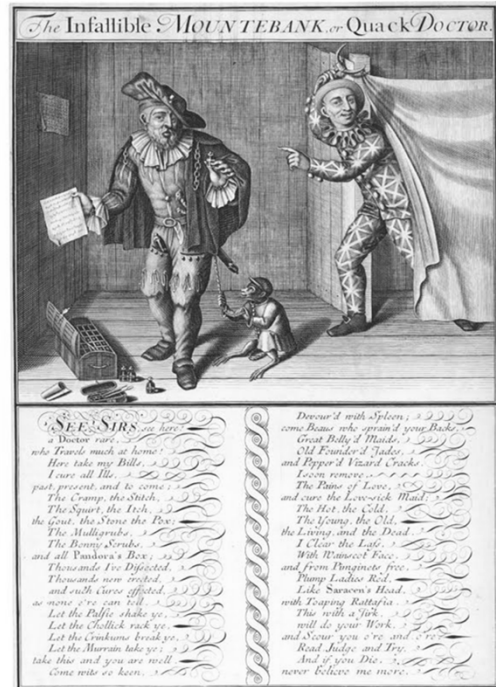 The Infallible MOUNTEBANK, or Quack DOCTOR.
SEE SIRS, see here!
a Doctor rare,
who Travels much at home!
Here take my Bills,
I cure all Ills,
past, present, and to come;
The Cramp, the Stitch,
The Squirt, the Itch,
the Gout, the Stone the Pox;
The Mulligrubs,
The Bonny Scrubs,
and all Pandora's Box;
Thousands I've Dissected,
Thousands new erected,
and such Cures effected,
as none e're can tell.
Let the Palsie shake ye,
Let the Chollick rack ye,
Let the Crinkums break ye,
Let the Murrain take ye;
take this and you are well.
Come wits so keen,
Devour'd with Spleen;
come Beaus who sprain'd your Backs,
Great Belly'd Maids,
Old Founder'd Jades,
and Pepper'd Vizard Cracks.
I soon remove,
The Pains of Love,
and cure the Love-sick Maid;
The Hot, the Cold,
The Young, the Old,
the Living, and the Dead.
I Clear the Lass,
With Wainscot Face,
and from Pimginets free,
Plump Ladies Red,
Like Saracen's Head,
with Toaping Rattafia.
This with a Jirk,
will do your Work,
and Scour you o're and o're,
Read Judge and Try,
And if you Die,
never believe me more.